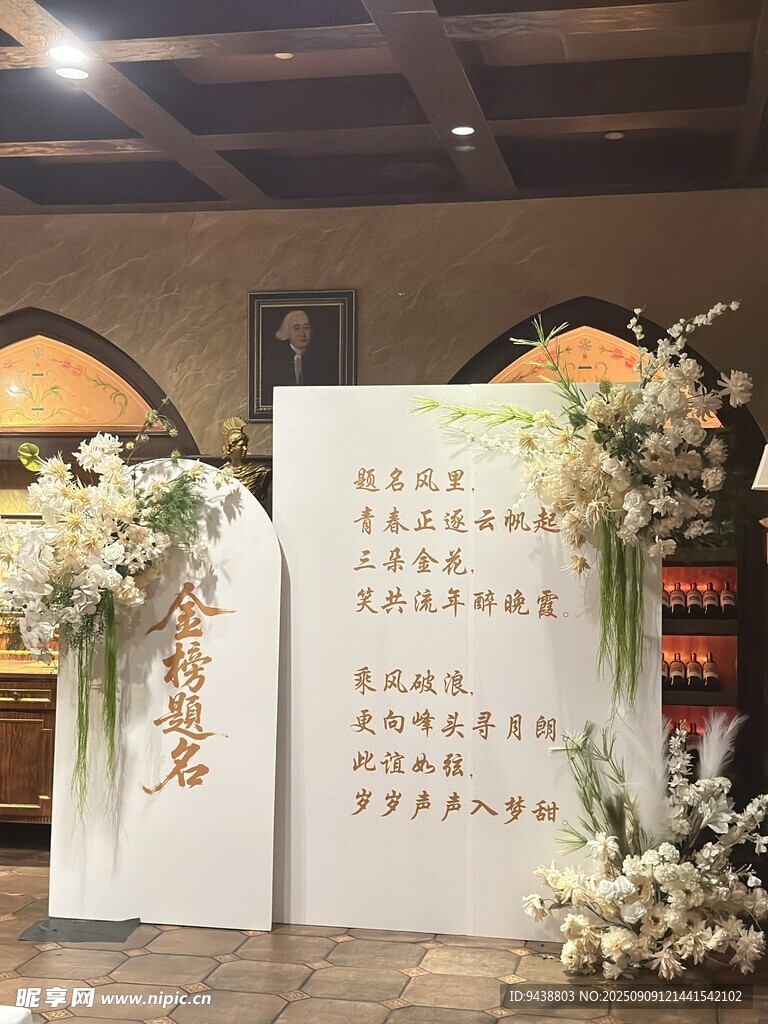 金榜題名
题名风里,
青春正逐云帆起
三朵金花,
笑共流年醉晚霞。
乘风破浪,
更向峰头寻月朗
此谊如弦,
岁岁声声入梦甜
昵享网 www.nipic.cn
ID:9438803 NO:20250909121441542102